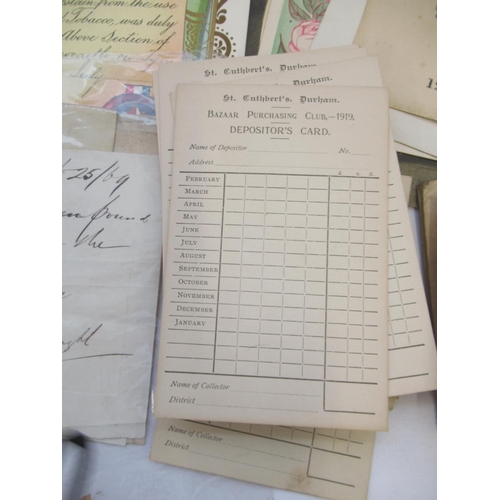 from the use
Tobacco, was duly
Above Section of
St. Cuthbert's, Durham.
Durham.
St. Cuthbert's, Durham.
Bazaar Purchasing Club,—1919.
DEPOSITOR'S CARD.
Name of Depositor No.
Address
£ s. d.
February
March
April
May
June
July
August
September
October
November
December
January
Name of Collector
District
Name of Collector
District
25/69
the